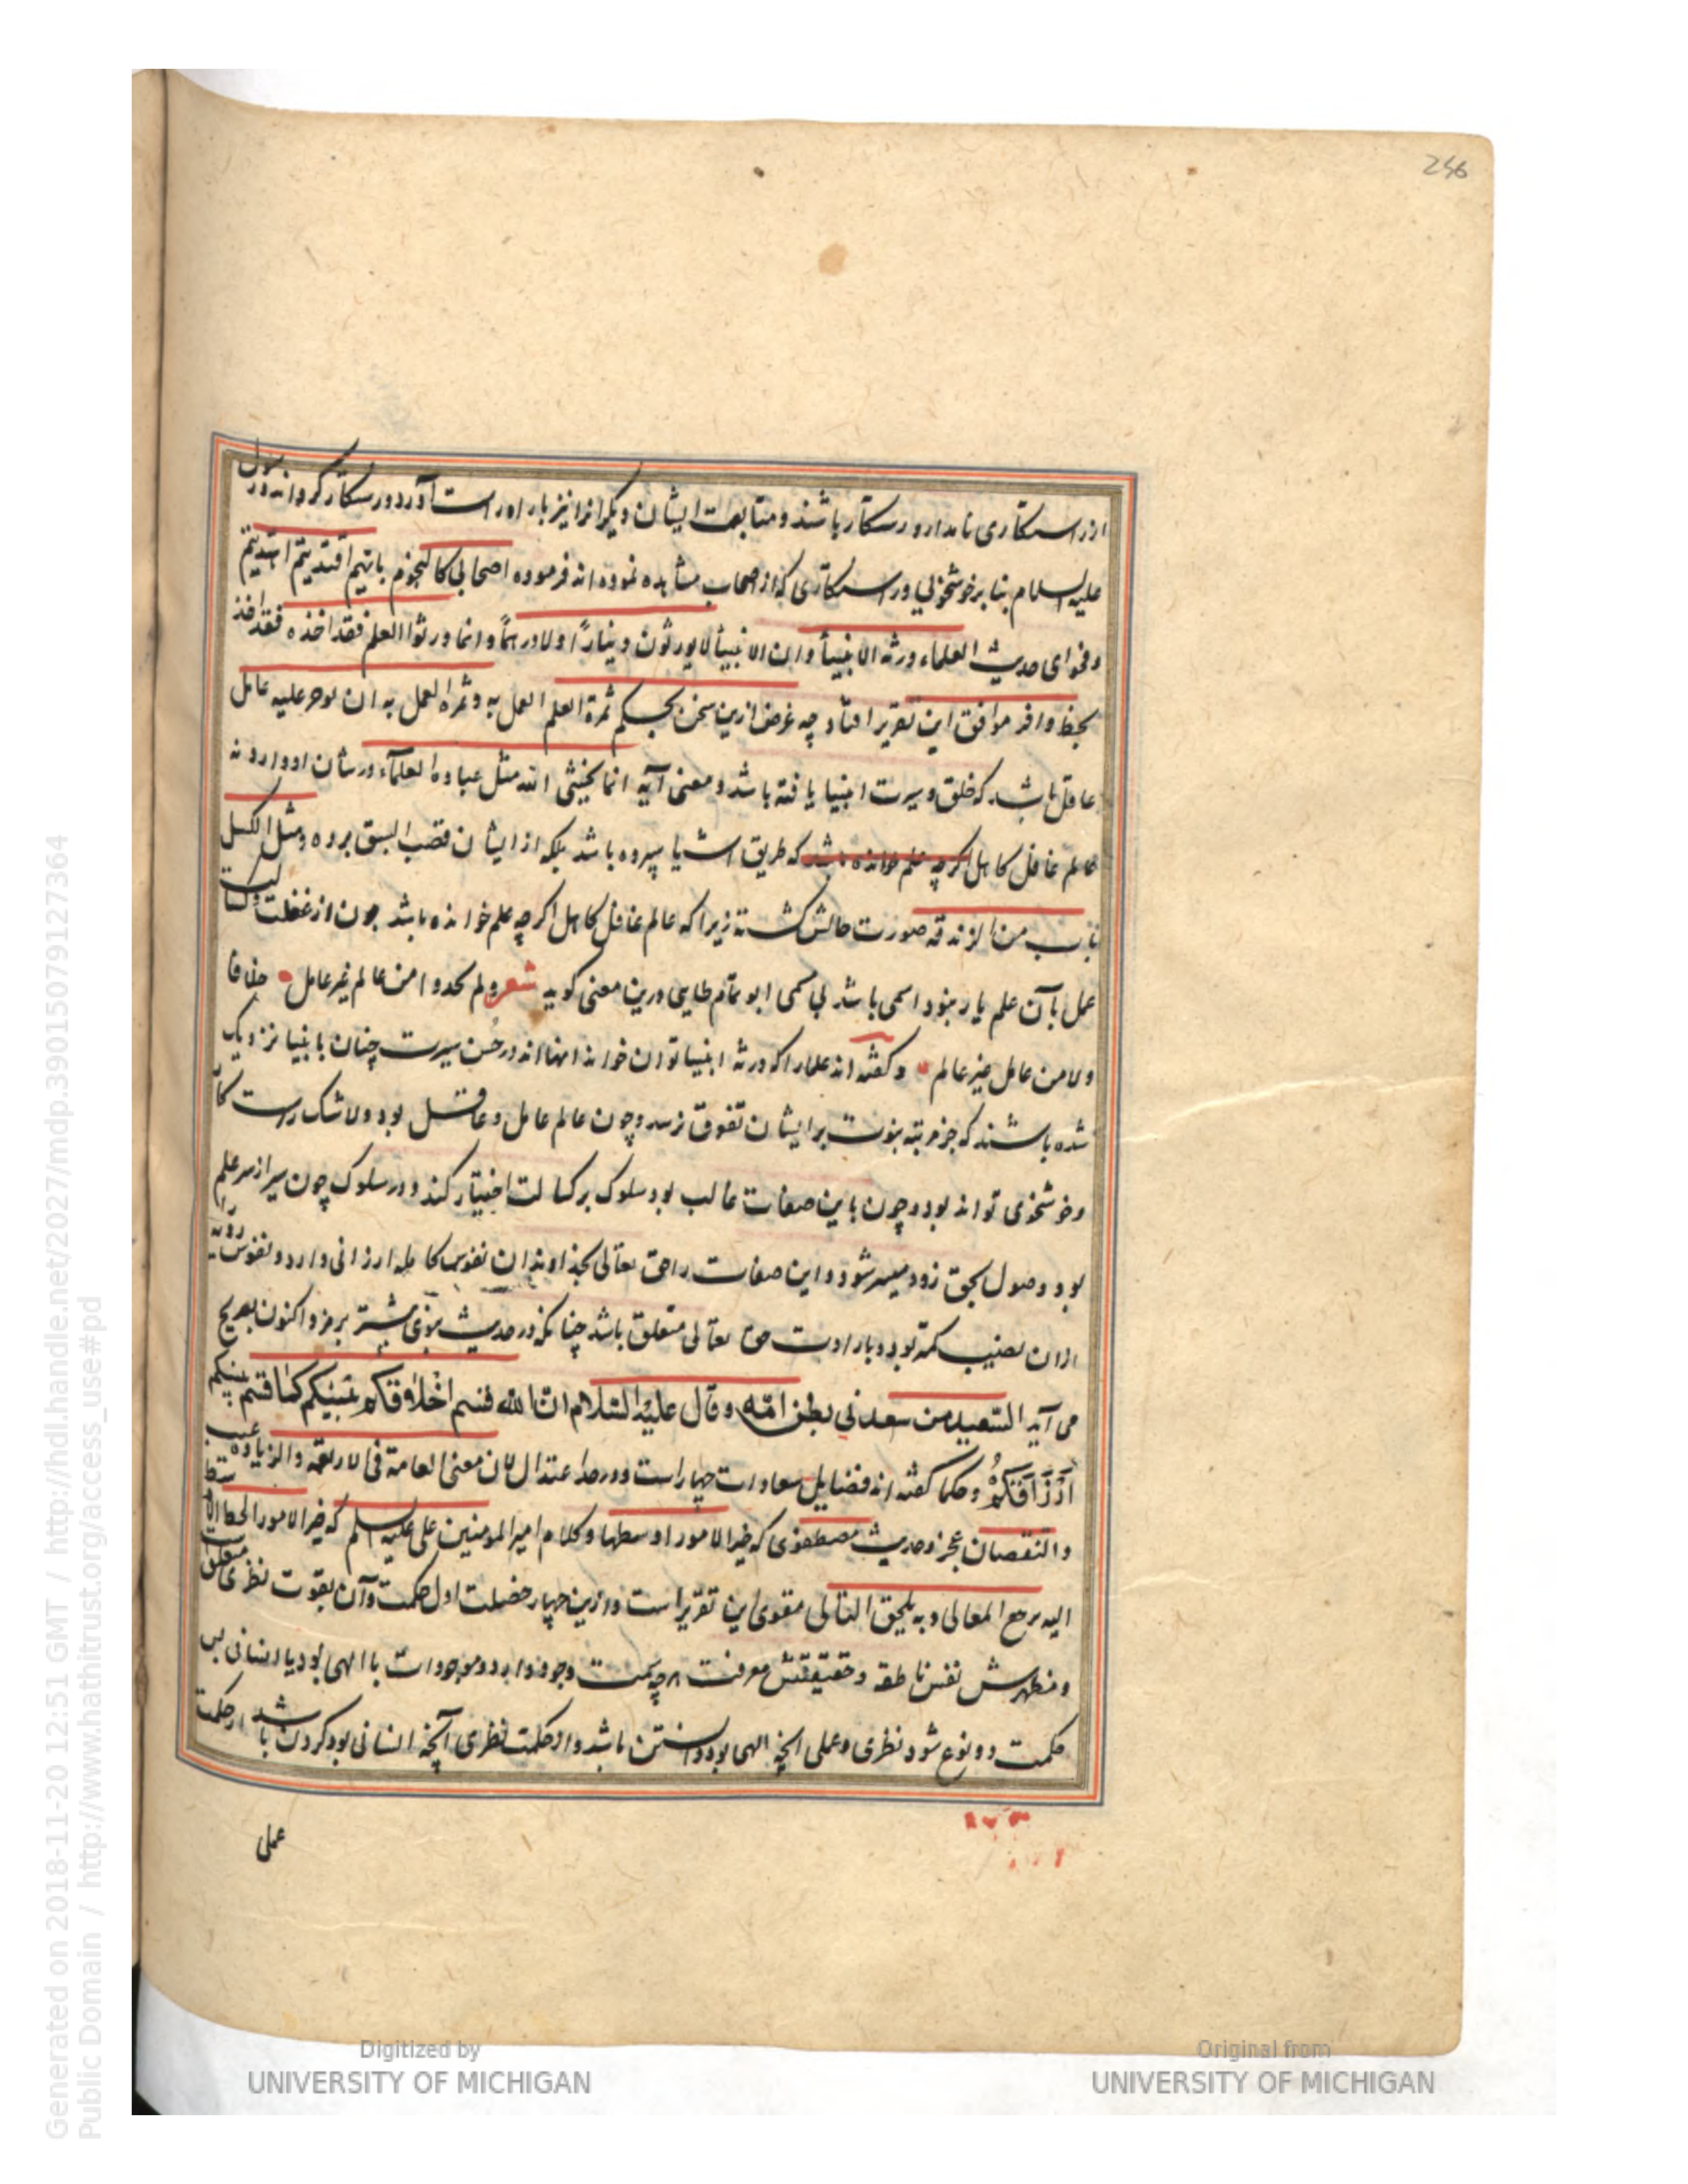 246
از رستکاری نامدار و رستکار باشند و متابعت ایشان دیکرانرا نیز براه راست آورد و رستکار کرداند و رسول
علیه السلام بنا بر خوشخویی و رستکاری که از اصحاب مشاهده نموده اند فرموده اصحابی کالنجوم بایهم اقتدیتم اهتدیتم
و فحوای حدیث العلماء ورثة الانبیآ و ان الانبیآ لا یورثون دینارًا و لا درهمًا و انما ورثوا العلم فقد اخذه فقد اخذ
بحظ وافر موافق این تقریر افتاد چه غرض ازین سخن بحکم ثمرة العلم العمل به و ثمره العمل به ان یوجر علیه عامل
عاقل باشد که خلق و سیرت انبیا یافته باشد و معنی آیه انما یخشی الله مثل عباده العلمآء در شان او وارد نه
عالم غافل کاهل اکرچه علم خوانده باشد که طریق اشیا سپرده باشد بلکه از ایشان قصب السبق برده و مثل الکسل
باب من الزندقه صورت حالش کشته زیرا که عالم غافل کاهل اکرچه علم خوانده باشد چون از غفلت و کسالت
عمل با آن علم یار نبود اسمی باشد بی مسمی ابو تمام طایی درین معنی کوید شعر ولم تحدوا من عالم غیر عامل خلافا
ولا من عامل غیر عالم و کفته اند علما را که ورثه انبیا توان خواند آنها اند در حُسن سیرت چنان با نبیا نزدیک
شده باشند که جز مرتبه نبوت بر ایشان تفوق نرسد و چون عالم عامل و عاقل بود و لاشک راست کار
و خوشخوی تواند بود و چون باین صفات غالب بود سلوک بر کسالت اختیار کند و در سلوک چون سیر از سر علم
بود وصول بحق زود میسر شود و این صفات را حق تعالی بخداوندان نفوس کامله ارزانی دارد و نفوس ردیه را
ازان نصیب کمتر بود و بارادت حق تعالی متعلق باشد چنانکه در حدیث نبوی بیشتر برمز و اکنون بصریح
می آید السّعید من سعد فی بطن امّه و قال علیه السّلام ان الله قسم اخلاقکم بینکم کما قسم بینکم
ارزاقکم و حکما کفته اند فضایل سعادات چهار است و در حد اعتدال لان معنی العامة فی الاربعه و الزیاده عیب
و النقصان عجز و حدیث مصطفوی که خیر الامور اوسطها و کلام امیر المومنین علی علیه السلم که خیر الامور
الیه یرجع المعالی و به یلحق التالی مقوی این تقریر است و ازین چهار خصلت اول حکمت و آن بقوت نظری متعلق است
و مظهرش نفس ناطقه و حقیقتش معرفت هر چه سمت وجود دارد و موجودات یا الهی بود یا انسانی پس
حکمت دو نوع شود نظری و عملی آنچه الهی بود دانستن باشد و از حکمت نظری آنچه انسانی بود کردن باشد از حکمت
عملی
Generated on 2018-11-20 12:51 GMT / http://hdl.handle.net/2027/mdp.39015079127364
Public Domain / http://www.hathitrust.org/access_use#pd
Digitized by
UNIVERSITY OF MICHIGAN
Original from
UNIVERSITY OF MICHIGAN